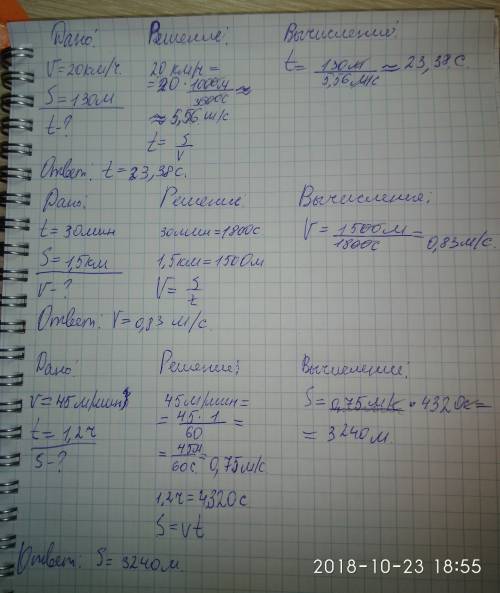 Дано: Решение: Вычисления:
V=20км/ч. 20 км/ч = t= 130м / 5,56 м/с ≈ 23,38с.
S=130м =20·1000м/3600с≈
t-? ≈5,56 м/с
t= S/V
Ответ: t=23,38с.
Дано: Решение Вычисления:
t=30мин 30мин=1800с V= 1500м/1800с =0,83м/с.
S=1,5км 1,5км=1500м
V-? V= S/t
Ответ: V=0,83 м/с.
Дано: Решение: Вычисления:
v=45м/мин 45м/мин= S=0,75м/с · 4320с=
t=1,2ч = 45·1/60 = = 3240м.
S-? = 45м/60с = 0,75м/с.
1,2ч=4320с
S=vt
Ответ: S= 3240м.
2018-10-23 18:55